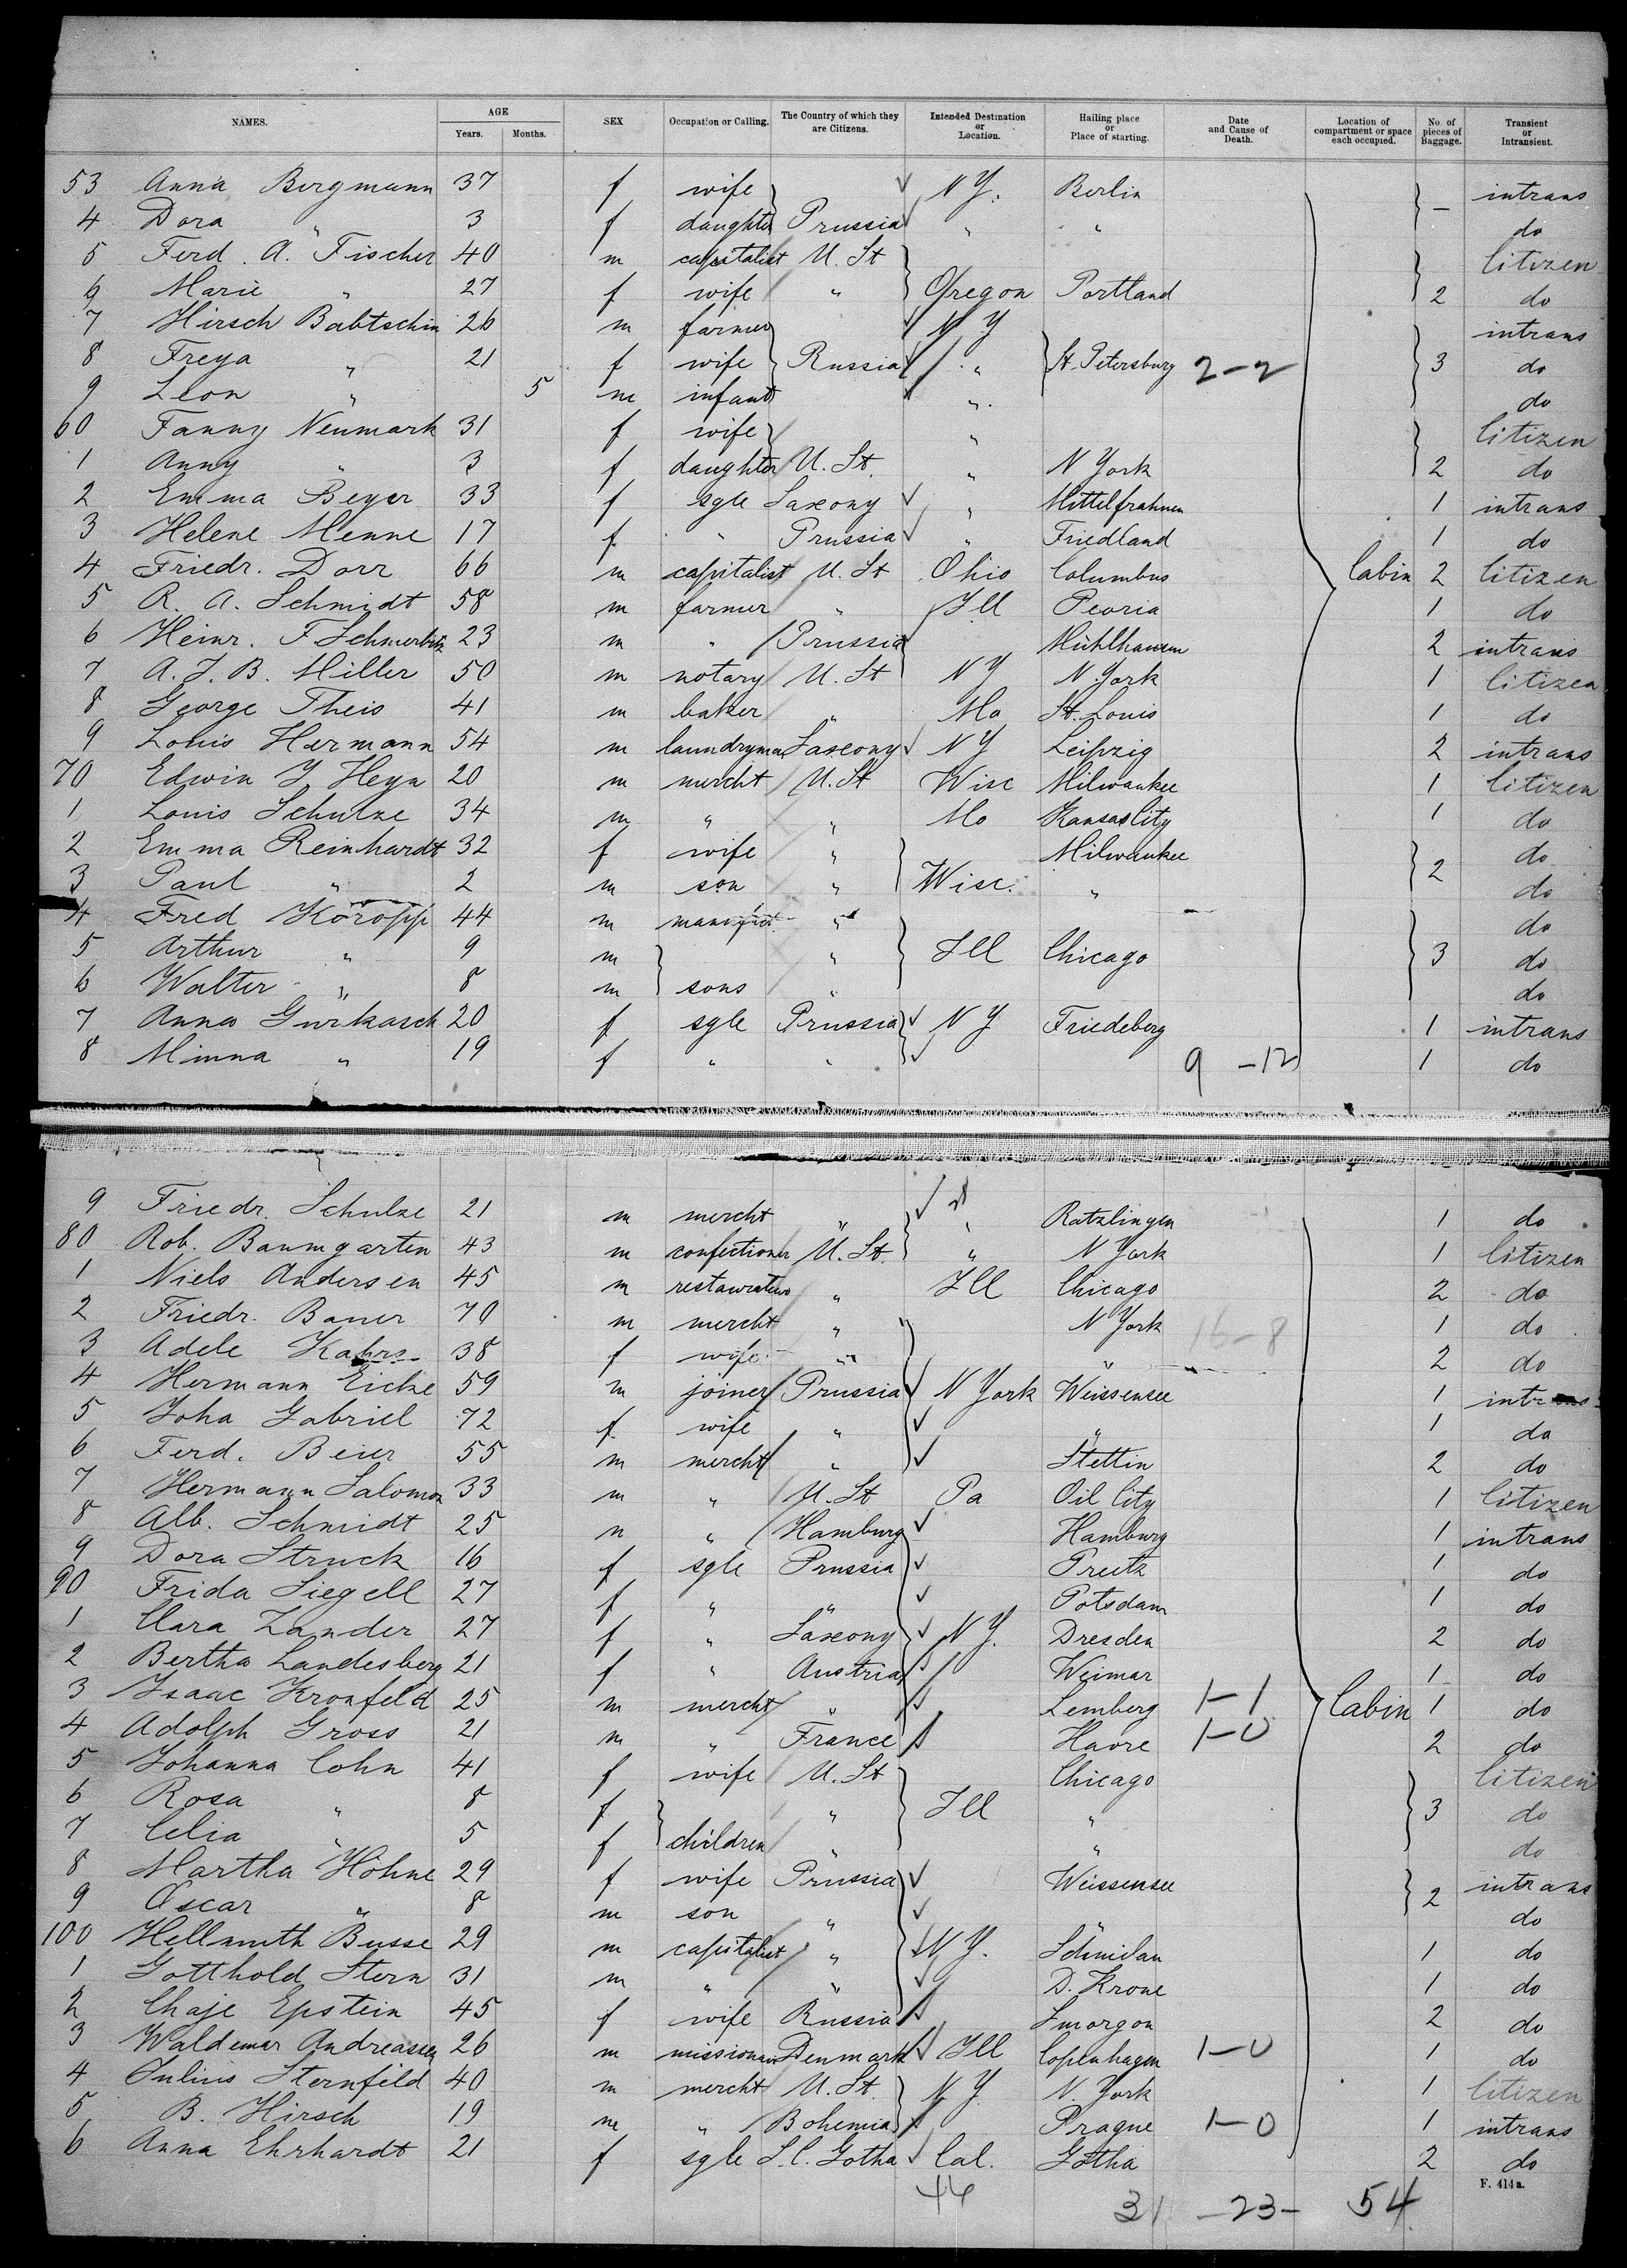 NAMES. AGE Years. Months. SEX Occupation or Calling. The Country of which they are Citizens. Intended Destination or Location. Hailing place or Place of starting. Date and Cause of Death. Location of compartment or space each occupied. No. of pieces of Baggage. Transient or Intransient.
53 Anna Bergmann 37 f wife N Y. Berlin intrans
4 Dora " 3 f daughter Prussia " " – do
5 Ferd. A. Fischer 40 m capitalist U. St Citizen
6 Marie " 27 f wife " Oregon Portland 2 do
7 Hirsch Babtschin 26 m farmer N Y intrans
8 Freya " 21 f wife Russia " St. Petersburg 2-2 3 do
9 Leon " 5 m infant " do
60 Fanny Neumark 31 f wife " Citizen
1 Anny " 3 f daughter U. St. " N York 2 do
2 Emma Beyer 33 f sgle Saxony " 1 intrans
3 Helene Menne 17 f " Prussia " Friedland 1 do
4 Friedr. Dorr 66 m capitalist U. St Ohio Columbus Cabin 2 Citizen
5 R. A. Schmidt 58 m farmer " Ill Peoria 1 do
6 Heinr. F 23 m " Prussia Mühlhausen 2 intrans
7 A. J. B. Miller 50 m notary U. St N Y N. York 1 Citizen
8 George Theis 41 m baker " Mo St. Louis 1 do
9 Louis Hermann 54 m laundryman Saxony N Y Leipzig 2 intrans
70 Edwin Y Heyn 20 m mercht U. St Wisc Milwaukee 1 Citizen
1 Louis Schulze 34 m " " Mo Kansas City 1 do
2 Emma Reinhardt 32 f wife " Milwaukee do
3 Paul " 2 m son " Wisc. " 2 do
4 Fred Koropp 44 m " do
5 Arthur " 9 m " Ill Chicago 3 do
6 Walter " 8 m sons " do
7 Anna Gurkasch 20 f sgle Prussia N Y Friedeberg 1 intrans
8 Minna " 19 f " " 9 -12 1 do
9 Friedr. Schulze 21 m mercht " " Ratzlingen 1 do
80 Rob. Baumgarten 43 m confectioner U. St. " N York 1 Citizen
1 Niels Andersen 45 m " Ill Chicago 2 do
2 Friedr. Bauer 70 m mercht " N York 16-8 1 do
3 Adele Kahrs 38 f wife " " 2 do
4 Hermann Eicke 59 m joiner Prussia N York Weissensee 1 intrans
5 Joha Gabriel 72 f wife " " 1 do
6 Ferd. Beier 55 m mercht " Stettin 2 do
7 Hermann Salomon 33 m " U. St Pa Oil City 1 Citizen
8 Alb. Schmidt 25 m " Hamburg Hamburg 1 intrans
9 Dora Struck 16 f sgle Prussia Preetz 1 do
90 Frida Siegell 27 f " " Potsdam 1 do
1 Clara Zander 27 f " Saxony N Y. Dresden 2 do
2 Bertha Landesberg 21 f " Austria Weimar 1 do
3 Isaac Kronfeld 25 m mercht " Lemberg 1-1 Cabin 1 do
4 Adolph Gross 21 m " France Havre 1-0 2 do
5 Johanna Cohn 41 f wife U. St Chicago Citizen
6 Rosa " 8 f " Ill " 3 do
7 Celia " 5 f children " " do
8 Martha Höhne 29 f wife Prussia Weissensee intrans
9 Oscar " 8 m son " " 2 do
100 Hellmuth Busse 29 m capitalist " N Y. 1 do
1 Gotthold Stern 31 m " " D. Krone 1 do
2 Chaje Epstein 45 f wife Russia Smorgon 2 do
3 Waldemar Andreassen 26 m Denmark Ill Copenhagen 1-0 1 do
4 Julius Sternfeld 40 m mercht U. St. N Y. N. York 1 Citizen
5 B. Hirsch 19 m " Bohemia Prague 1-0 1 intrans
6 Anna Ehrhardt 21 f sgle S. C. Gotha Cal. Gotha 2 do
F. 414a.
44 31 -23- 54